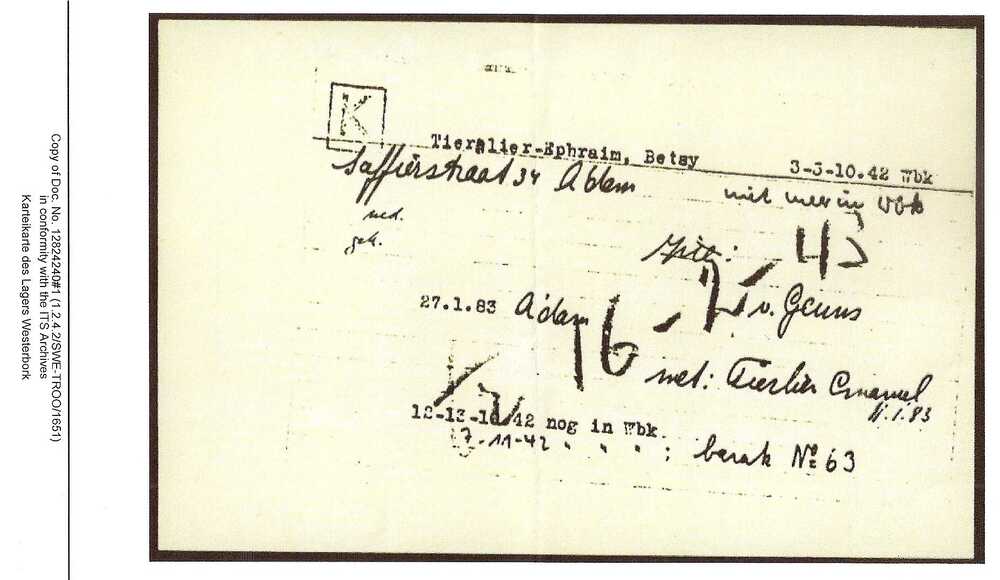 Copy of Doc. No. 12824240#1 (1.2.4.2/SWE-TROO/1651)
in conformity with the ITS Archives
Karteikarte des Lagers Westerbork
K
Tieralier-Ephraim, Betsy 3-3-10.42 Wbk
Saffierstraat 34 Adam
ned.
geh.
27.1.83 Adam
16-2-43
v. Geuns
met: Emanuel
11.1.83
12-13-10-42 nog in Wbk.
7-11-42 " " " ; barak No 63